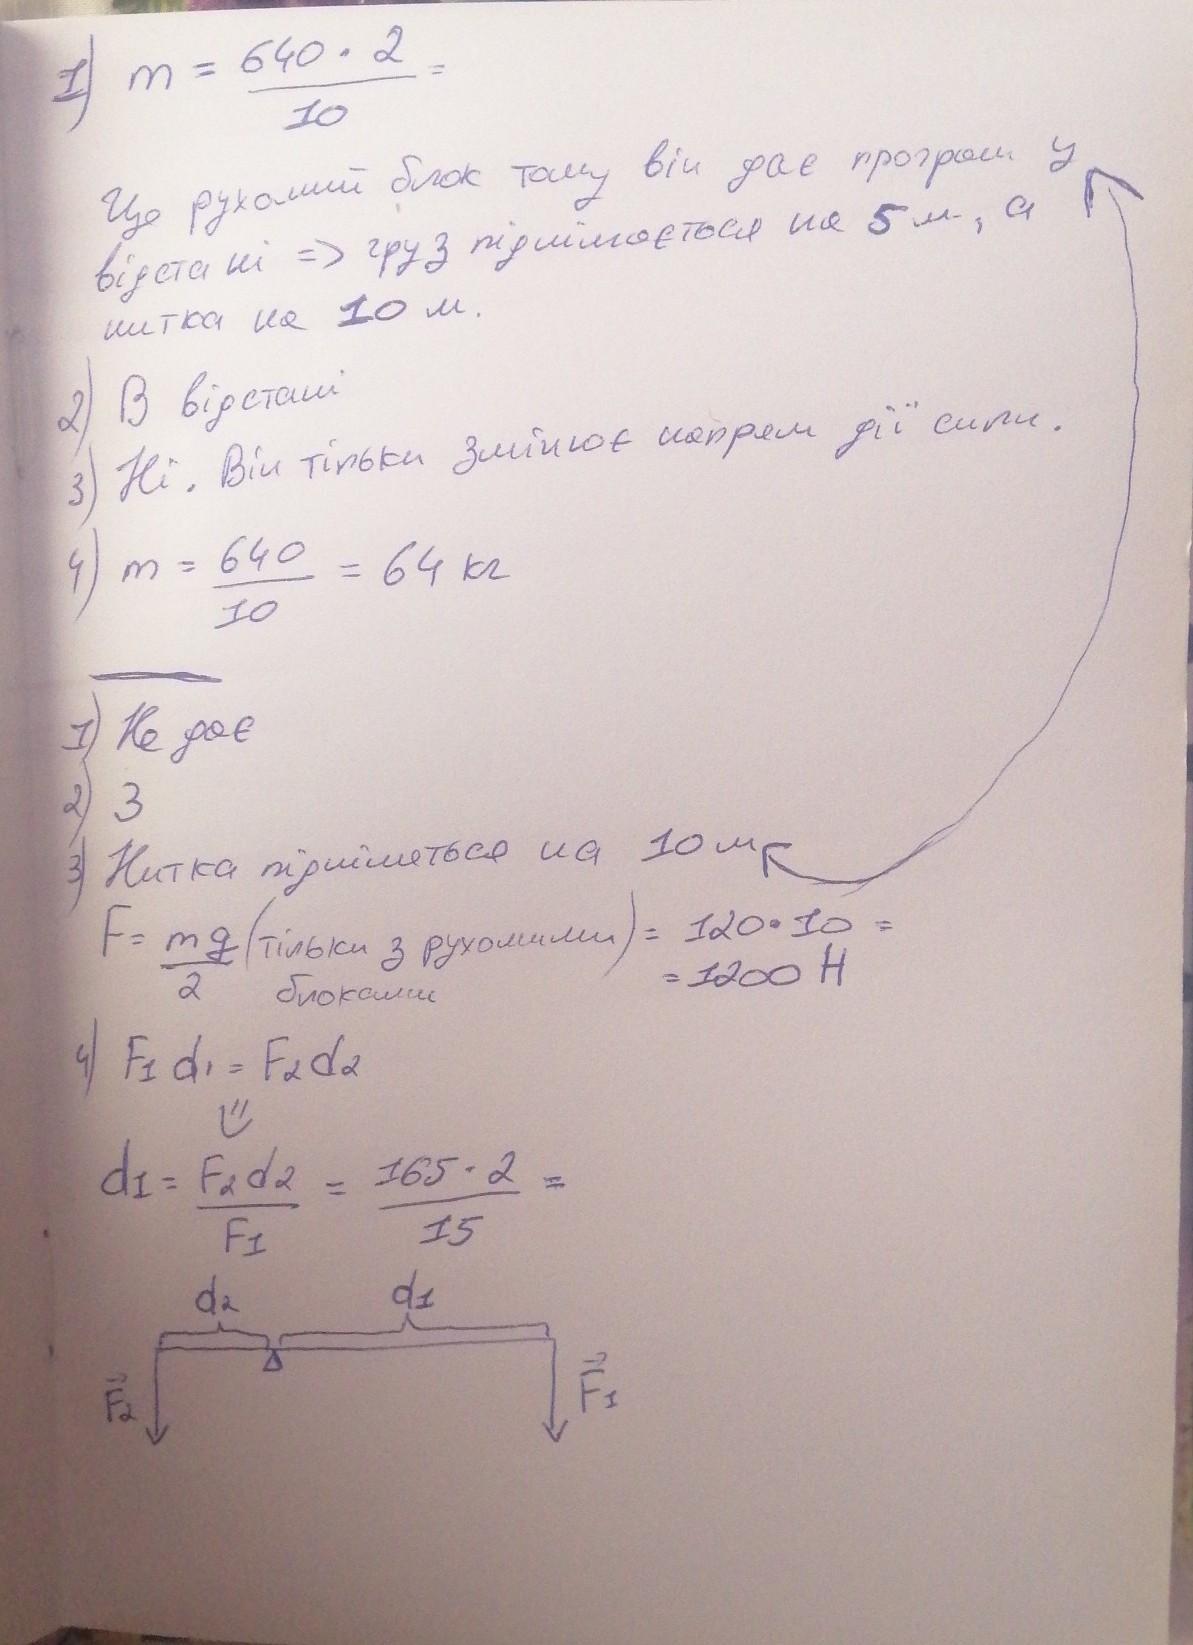 1) m = 640 · 2 / 10 =
Це рухомий блок тому він дає програш у
відстані => груз піднімається на 5 м, а
нитка на 10 м.
2) В відстані
3) Ні. Він тільки змінює напрям дії сили.
4) m = 640 / 10 = 64 кг
1) Не дає
2) 3
3) Нитка підніметься на 10 м
F = mg / 2 (тільки з рухомими блоками) = 120 · 10 =
= 1200 Н
4) F1 d1 = F2 d2
d1 = F2 d2 / F1 = 165 · 2 / 15 =
d2 d1
F2 F1